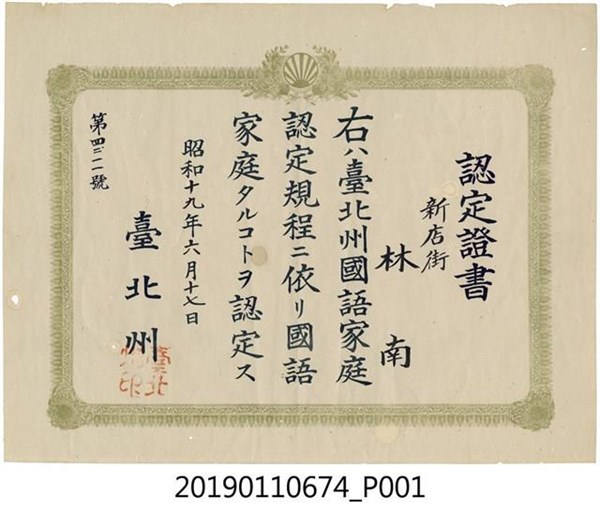 認定證書
新店街
林南
右ハ臺北州國語家庭
認定規程ニ依リ國語
家庭タルコトヲ認定ス
昭和十九年六月十七日
臺北州
臺北州印
第四二一號
20190110674_P001